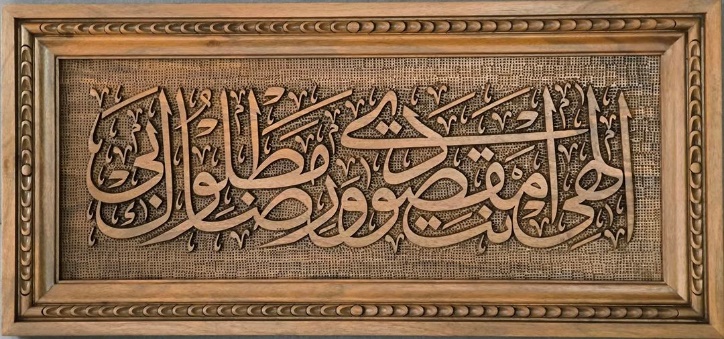 الهی انت مقصودی ورضاک مطلوبی